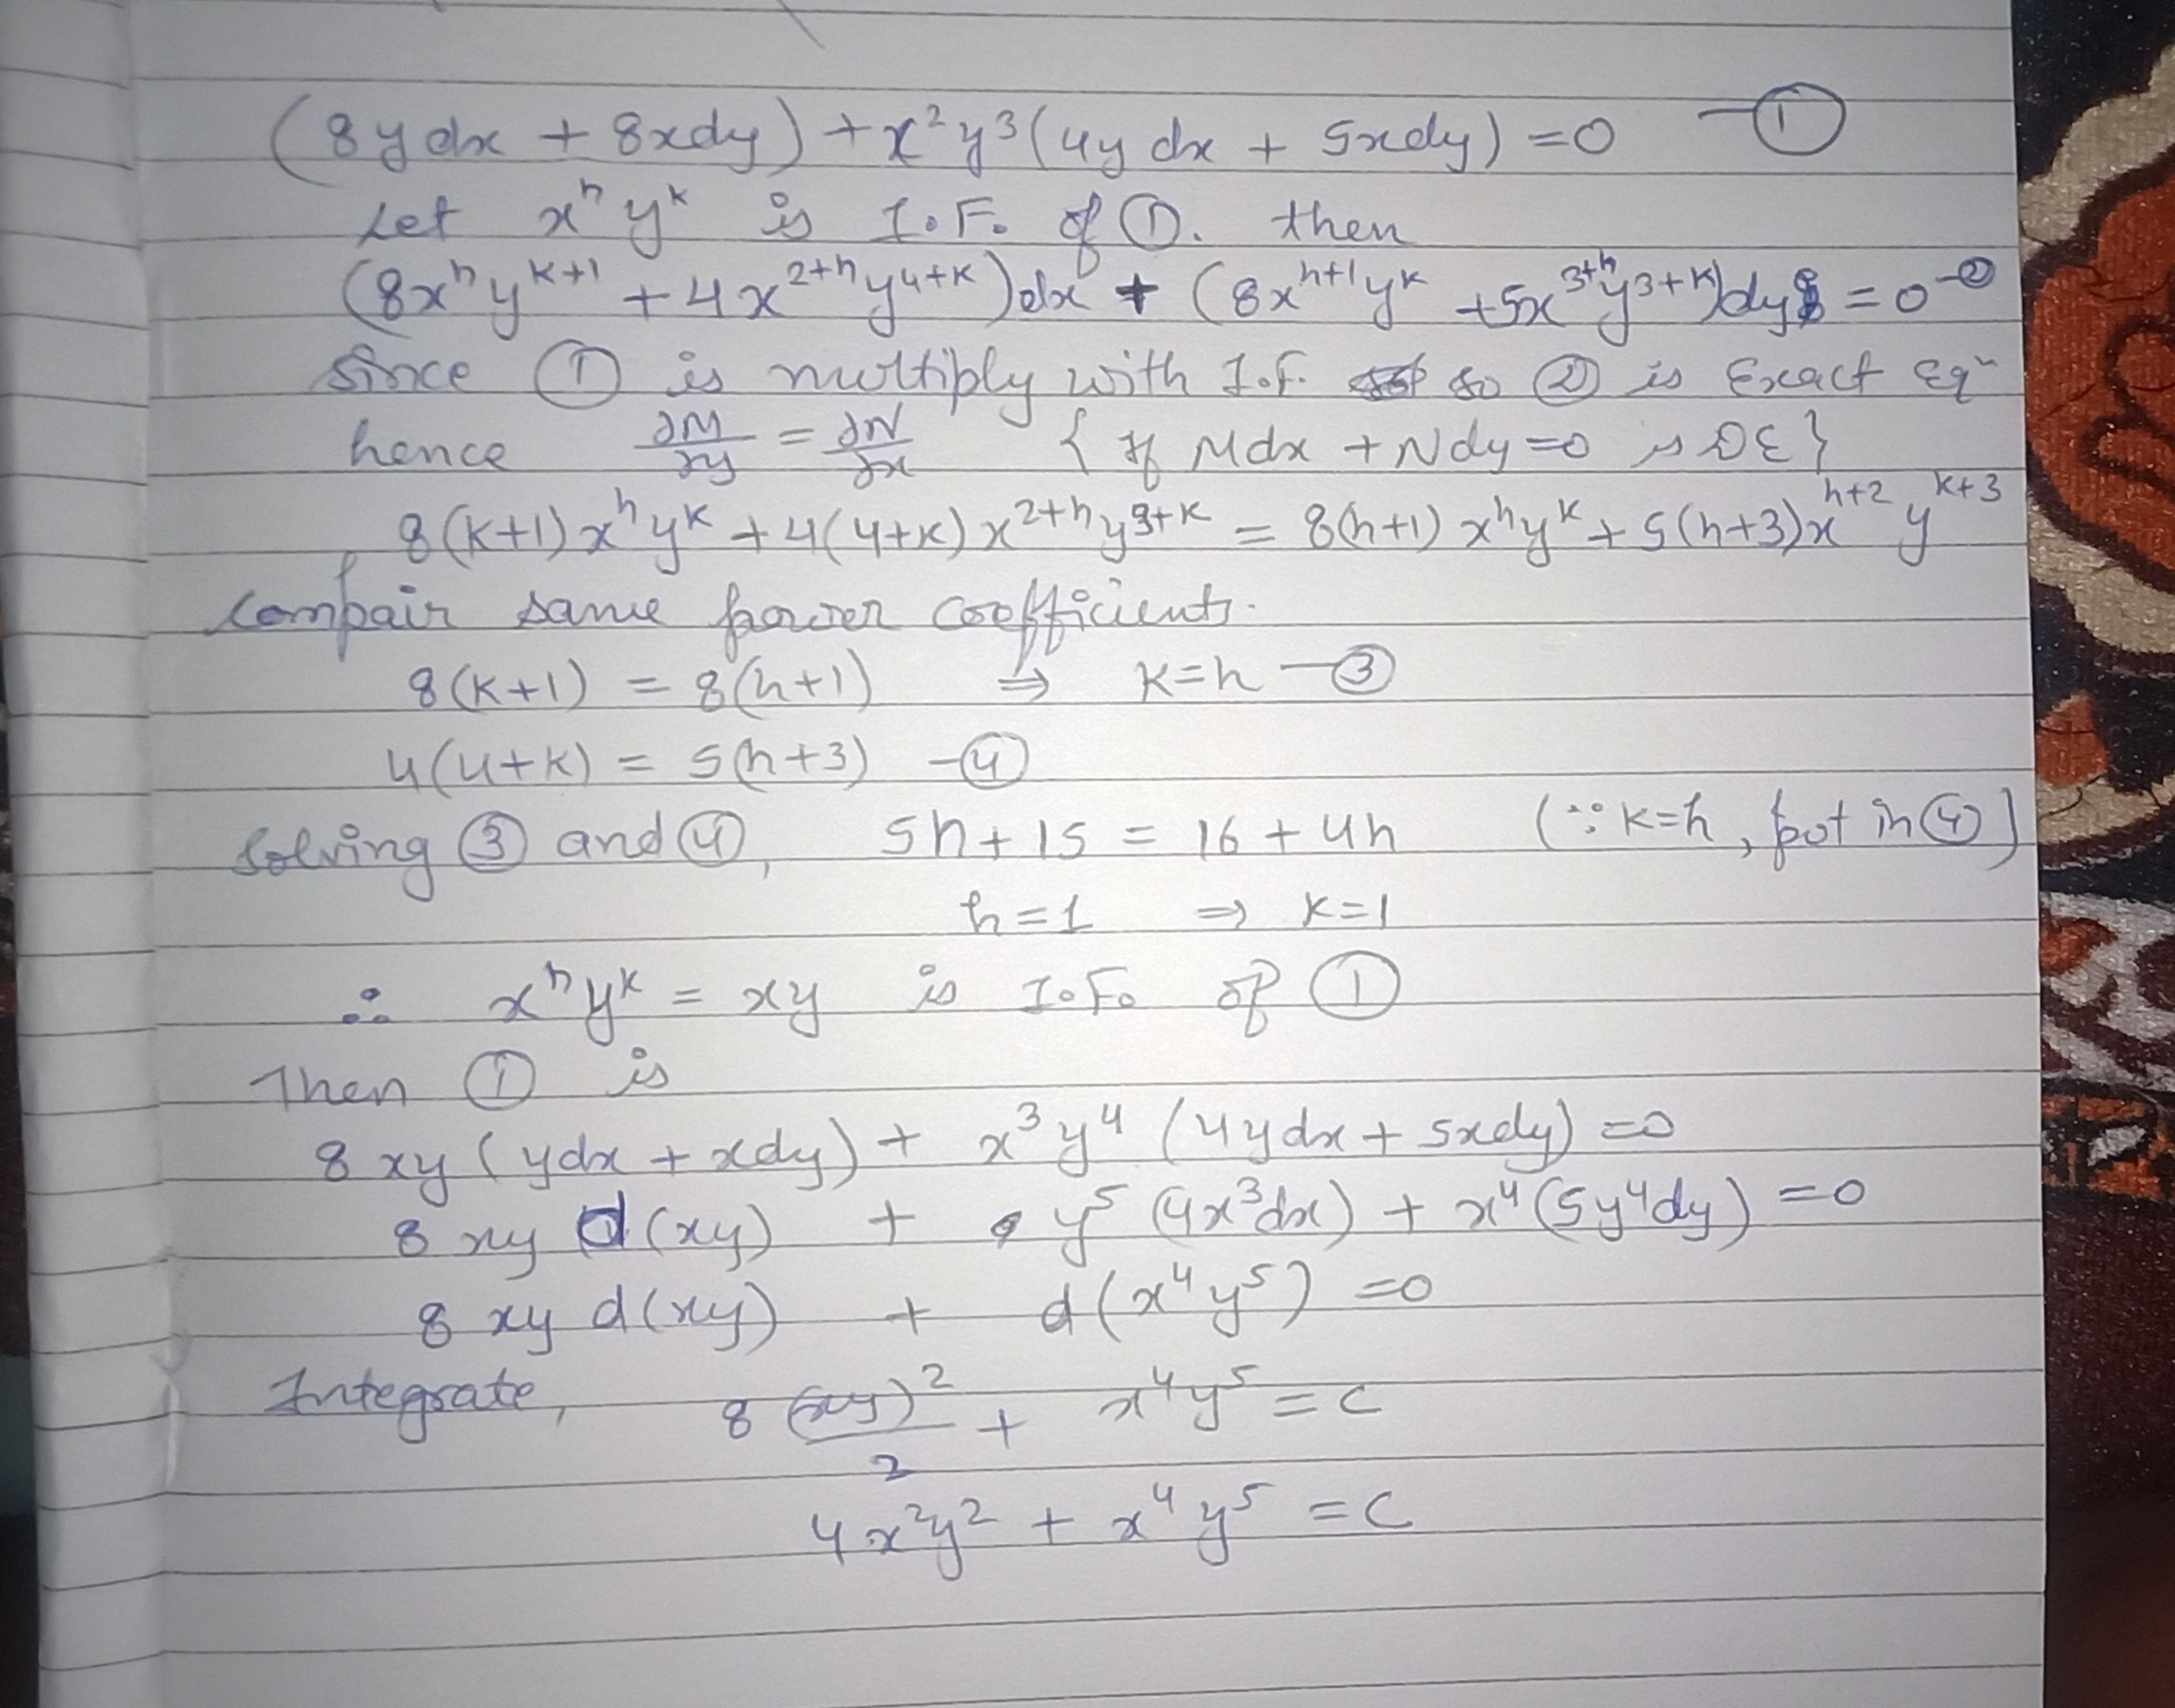 (8ydx + 8xdy) + x²y³(4ydx + 5xdy) = 0 —①
Let xʰyᵏ is I.F. of ①. then
(8xʰyᵏ⁺¹ + 4x²⁺ʰy⁴⁺ᵏ)dx + (8xʰ⁺¹yᵏ + 5x³⁺ʰy³⁺ᵏ)dy = 0 —②
Since ① is multiply with I.F. so ② is Exact Eqⁿ
hence ∂M/∂y = ∂N/∂x { If Mdx + Ndy = 0 is DE }
8(k+1)xʰyᵏ + 4(4+k)x²⁺ʰy³⁺ᵏ = 8(h+1)xʰyᵏ + 5(h+3)xʰ⁺²yᵏ⁺³
Compair same power coefficients.
8(k+1) = 8(h+1) ⇒ k=h —③
4(4+k) = 5(h+3) —④
Solving ③ and ④, 5h+15 = 16+4h (∵ k=h, put in ④)
h=1 ⇒ k=1
∴ xʰyᵏ = xy is I.F. of ①
Then ① is
8xy(ydx + xdy) + x³y⁴(4ydx + 5xdy) = 0
8xy d(xy) + y⁵(4x³dx) + x⁴(5y⁴dy) = 0
8xy d(xy) + d(x⁴y⁵) = 0
Integrate, 8 (xy)²/2 + x⁴y⁵ = c
4x²y² + x⁴y⁵ = c